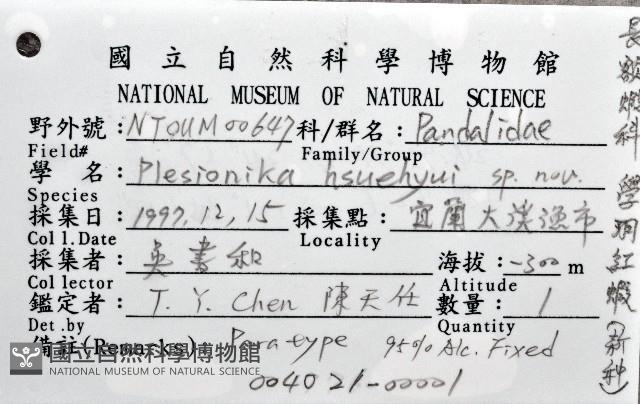 國立自然科學博物館
NATIONAL MUSEUM OF NATURAL SCIENCE
野外號:NTOUM00647 科/群名:Pandalidae
Field# Family/Group
學 名:Plesionika hsuehyui sp. nov.
Species
採集日:1997,12,15 採集點:宜蘭大溪漁市
Col l.Date Locality
採集者:吳書和 海拔:-300 m
Col lector Altitude
鑑定者:T. Y. Chen 陳天任 數量:1
Det .by Quantity
備註(Remarks) Paratype 95% Alc. Fixed
004021-00001
長額蝦科 學洞紅蝦(新種)
國立自然科學博物館
NATIONAL MUSEUM OF NATURAL SCIENCE